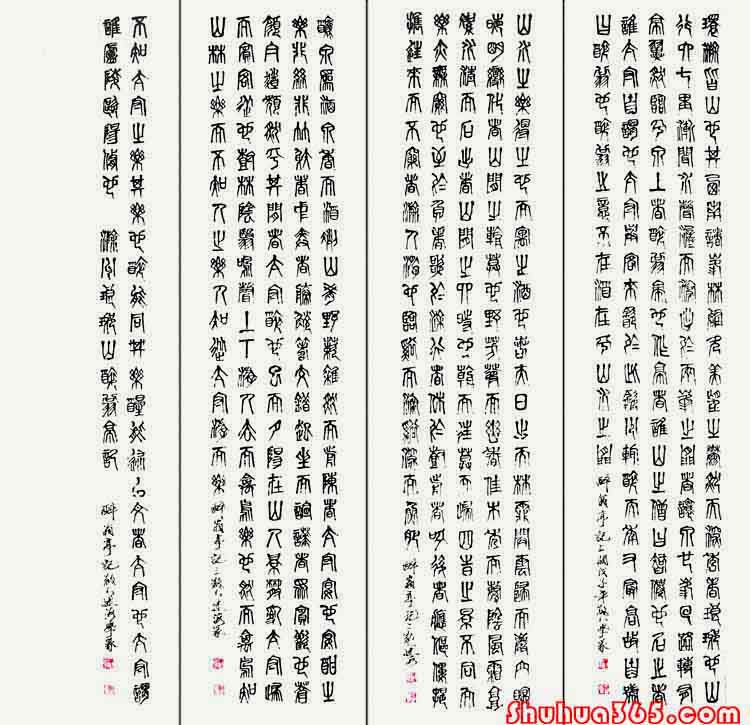 環滁皆山也其西南諸峯林壑尤美望之蔚然而深秀者琅琊也山
行六七里漸聞水聲潺潺而瀉出於兩峯之間者釀泉也峯回路轉有
亭翼然臨于泉上者醉翁亭也作亭者誰山之僧曰智僊也名之者
誰太守自謂也太守與客來飲於此飲少輒醉而年又最高故自號
曰醉翁也醉翁之意不在酒在乎山水之間
醉翁亭記之一
山水之樂得之心而寓之酒也若夫日出而林霏開雲歸而巖穴暝
晦明變化者山間之朝暮也野芳發而幽香佳木秀而繁陰風霜高
潔水落而石出者山間之四時也朝而往暮而歸四時之景不同而
樂亦無窮也至於負者歌於塗行者休於樹前者呼後者應傴僂提
攜往來而不絕者滁人遊也臨谿而漁谿深而魚肥
醉翁亭記之二
釀泉為酒泉香而酒洌山肴野蔌雜然而前陳者太守宴也宴酣之
樂非絲非竹射者中弈者勝觥籌交錯起坐而諠譁者衆賓懽也蒼
顏白髮頹然乎其間者太守醉也已而夕陽在山人影散亂太守歸
而賓客從也樹林陰翳鳴聲上下遊人去而禽鳥樂也然而禽鳥知
山林之樂而不知人之樂人知從太守遊而樂
醉翁亭記之三
不知太守之樂其樂也醉能同其樂醒能述以文者太守也太守謂
誰廬陵歐陽修也 滁州琅琊山醉翁亭記
醉翁亭記
shuhua365.com